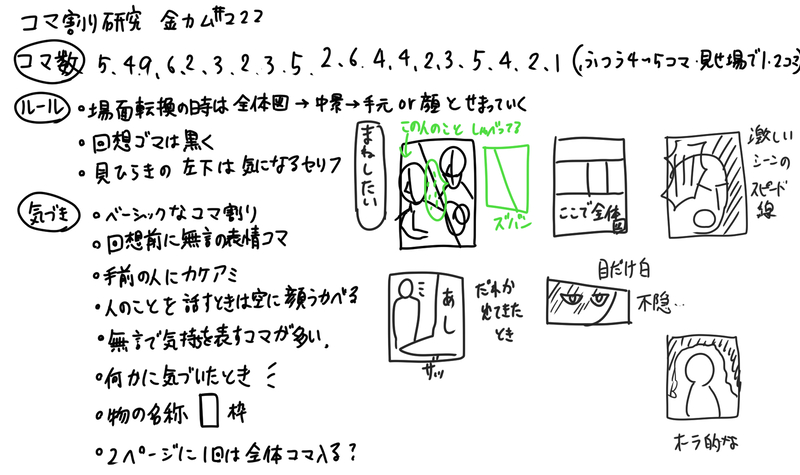 コマ割り研究 金カム#222
コマ数 5、4、9、6、2、3、2、3、5、2、6、4、4、2、3、5、4、2、1 (ふつう4〜5コマ・見せ場で1・2コマ)
ルール
・場面転換の時は全体図→中景→手元or顔とせまっていく
・回想ゴマは黒く
・見ひらきの左下は気になるセリフ
気づき
・ベーシックなコマ割り
・回想前に無言の表情コマ
・手前の人にカケアミ
・人のことを話すときは空に顔うかべる
・無言で気持を表すコマが多い。
・何かに気づいたとき
・物の名称 枠
・2ページに1回は全体コマ入る?
まねしたい
この人のこと しゃべってる
ズバン
ここで全体図
激しい
シーンの
スピード
線
あし
ザッ
だれか
出てきた
とき
目だけ白
不隠‥
オーラ的な